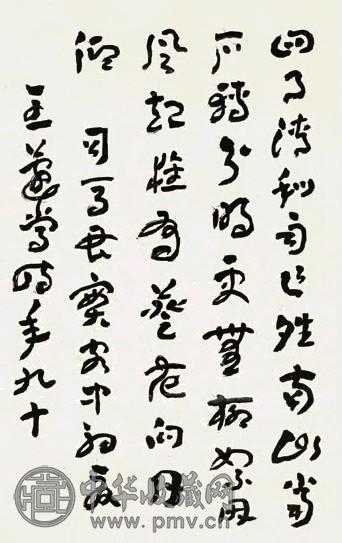 四月清和雨乍晴南山當
戶轉分明更無柳絮因
風起惟有葵花向日
傾 司馬君實客中初夏
王蘧常時年九十
中华收藏网
www.pmv.cn